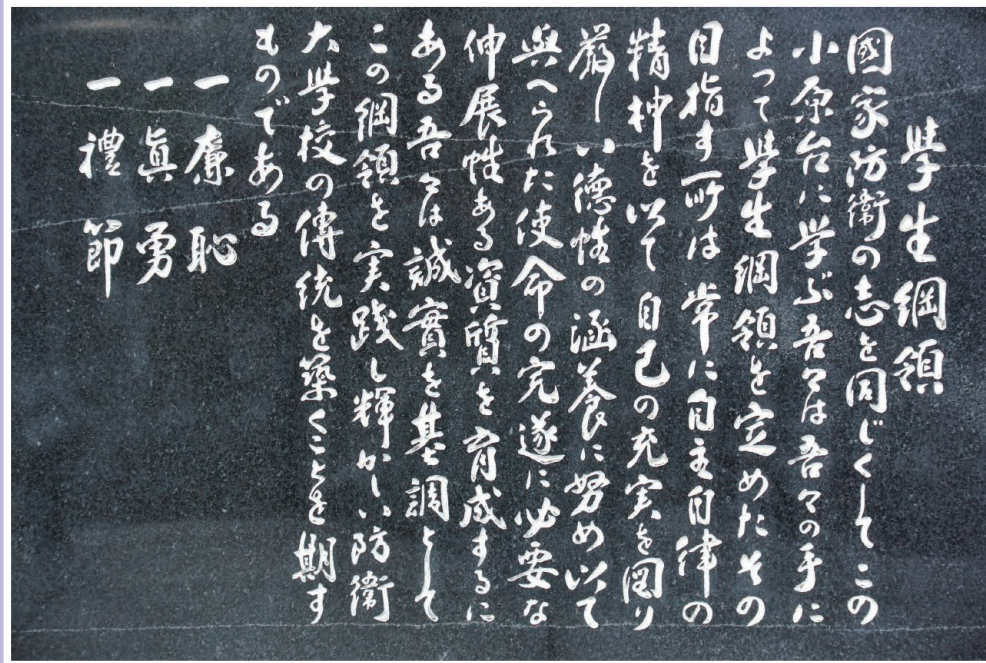 學生綱領
國家防衞の志を同じくしてこの
小原台に学ぶ吾々は吾々の手に
よって學生綱領を定めたその
目指す所は常に自主自律の
精神を以て自己の充実を図り
嚴しい德性の涵養に努め以て
與へられた使命の完遂に必要な
伸展性ある資質を育成するに
ある吾々は誠實を基調として
この綱領を実践し輝かしい防衞
大学校の傳統を築くことを期す
ものである
一 廉恥
一 眞勇
一 禮節